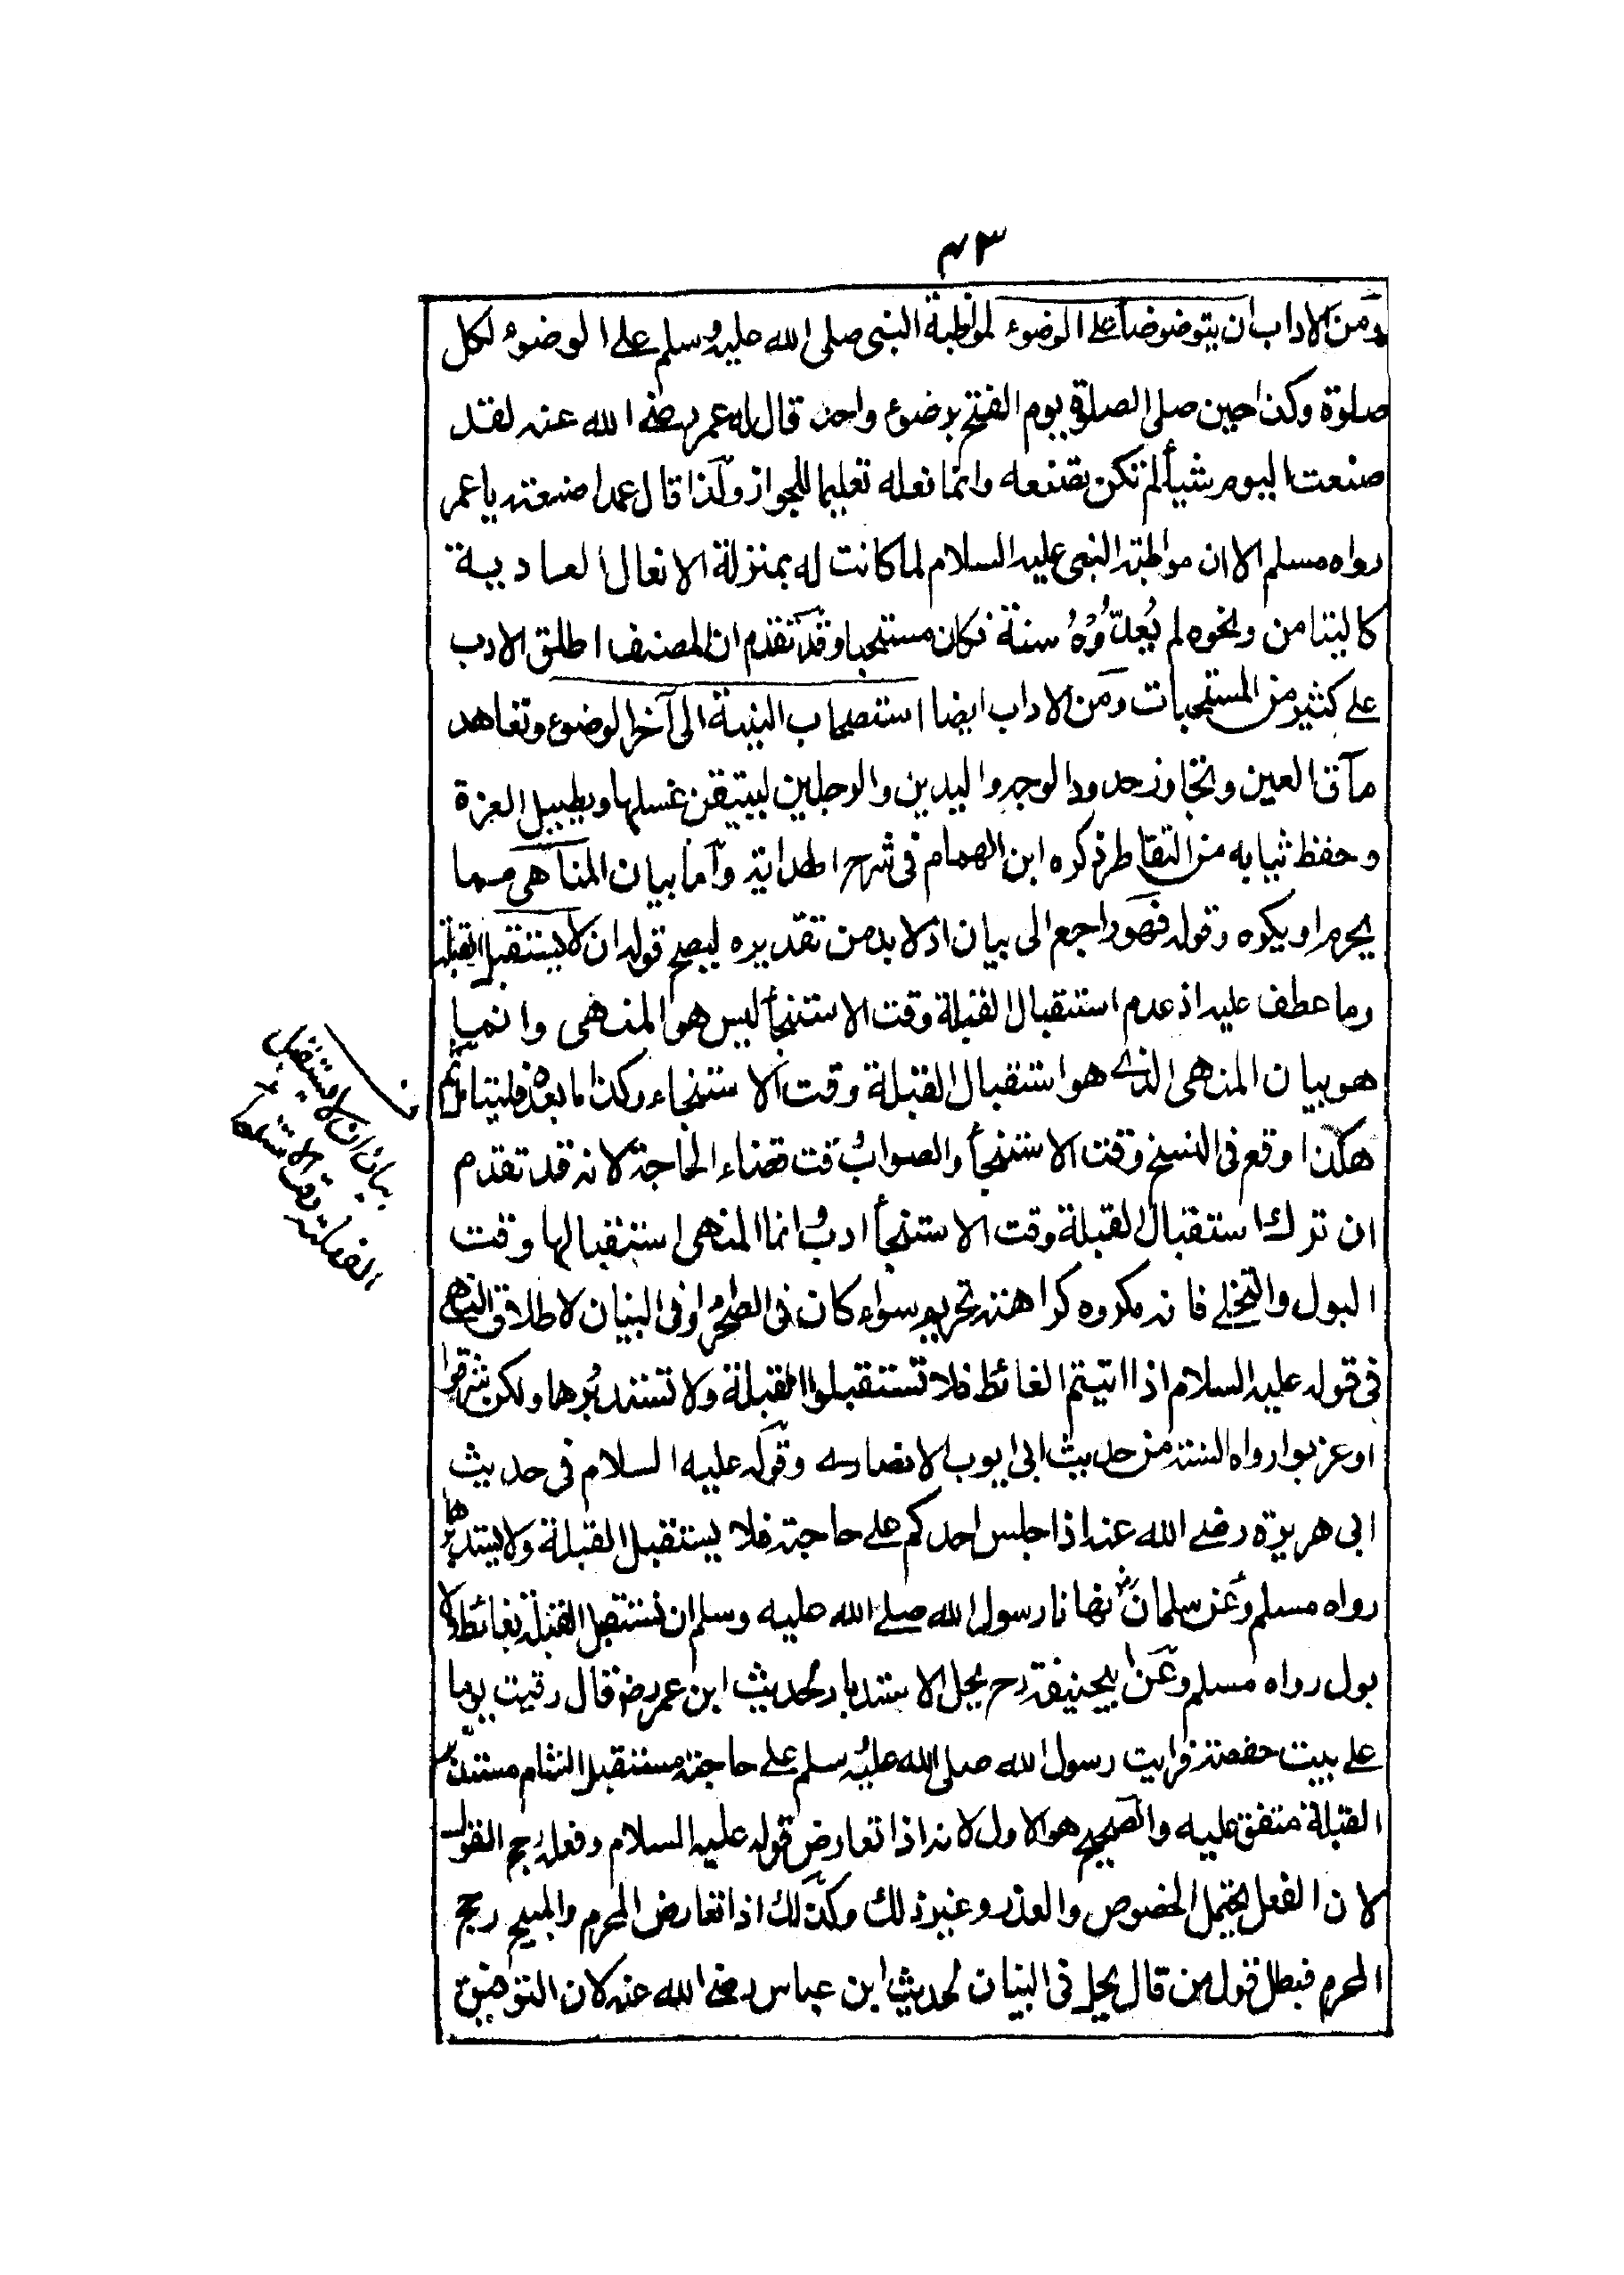 ٤٣
ومن الاداب ان يتوضوضأ على الوضوء لمواظبة النبى صلى الله عليه وسلم على الوضوء لكل
صلوة وكذا حين صلى الصلوة يوم الفتح بوضوء واحد قال له عمر رضى الله عنه لقد
صنعت اليوم شيأ لم تكن تصنعه وانما فعله تعليما للجواز ولذا قال عمدا صنعته يا عمر
رواه مسلم الا ان مواظبة النبى عليه السلام لما كانت له بمنزلة الافعال العادية
كالتيامن ونحوه لم يُعدّوُهُ سنة فكان مستحبا وقد تقدم ان المصنف اطلق الادب
على كثير من المستحبات ومن الاداب ايضا استصحاب النية الى آخر الوضوء وتعاهد
مآقى العين وتجاوز حدود الوجه واليدين والرجلين ليتيقن غسلها ويطيل الغرة
وحفظ ثيابه من التقاطر ذكره ابن الهمام فى شرح الهداية وأما بيان المناهى مما
يحرم او يكوه وقوله فهو راجع الى بيان اذ لا بد من تقديره ليصح قوله ان لا يستقبل القبلة
وما عطف عليه اذ عدم استقبال القبلة وقت الاستنجأ ليس هو المنهى وانما
هو بيان المنهى الذى هو استقبال القبلة وقت الاستنجاء وكذا ما بعده فليتأمل
هكذا وقع فى النسخ وقت الاستنجأ والصواب وقت قضاء الحاجة لانه قد تقدم
ان ترك استقبال القبلة وقت الاستنجأ ادب وانما المنهى استقبالها وقت
البول والتخلى فانه مكروه كراهته تحريم سواء كان فى الصحراء او فى البنيان لاطلاق النهى
فى قوله عليه السلام اذا اتيتم الغائط فلا تستقبلوا القبلة ولا تستدبُرها ولكن شرقوا
او غربوا رواه الستة من حديث ابى ايوب الانصارى وقوله عليه السلام فى حديث
ابى هريرة رضى الله عنه اذا جلس احدكم على حاجته فلا يستقبل القبلة ولا يستدبرها
رواه مسلم وعن سلمان نهانا رسول الله صلى الله عليه وسلم ان نستقبل القبلة بغائط او
بول رواه مسلم وعن ابيحنيفة رح يحل الاستدبار لحديث ابن عمر رض قال رقيت يوما
على بيت حفصة فرايت رسول الله صلى الله عليه وسلم على حاجته مستقبل الشام مستدبر
القبلة متفق عليه والصحيح هو الاول لانه اذا تعارض قوله عليه السلام وفعله رجح القول
لان الفعل يحتمل الخصوص والعذر وغير ذلك وكذلك اذا تعارض المحرم والمبيح رجح
المحرم فبطل قول من قال يحل فى البنيان لحديث ابن عباس رضى الله عنه لان التوفيق
بيان ان لا يستقبل
القبلة وقت الاستنجاء